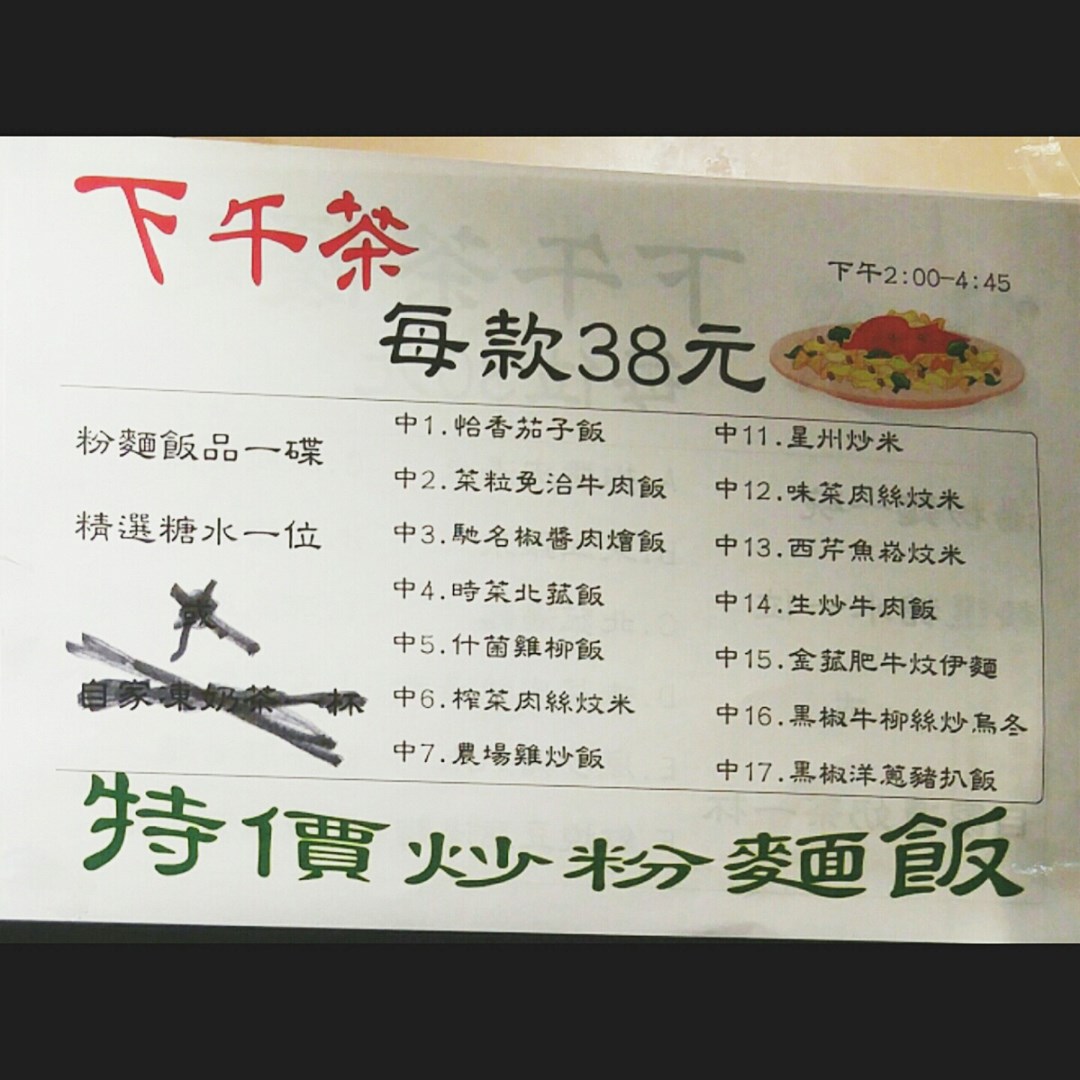 下午茶
下午2:00-4:45
每款38元
粉麵飯品一碟
精選糖水一位
或
自家凍奶茶一杯
中1.怡香茄子飯
中2.菜粒免治牛肉飯
中3.馳名椒醬肉燴飯
中4.時菜北菰飯
中5.什菌雞柳飯
中6.榨菜肉絲炆米
中7.農場雞炒飯
中11.星州炒米
中12.味菜肉絲炆米
中13.西芹魚崧炆米
中14.生炒牛肉飯
中15.金菰肥牛炆伊麵
中16.黑椒牛柳絲炒烏冬
中17.黑椒洋蔥豬扒飯
特價炒粉麵飯